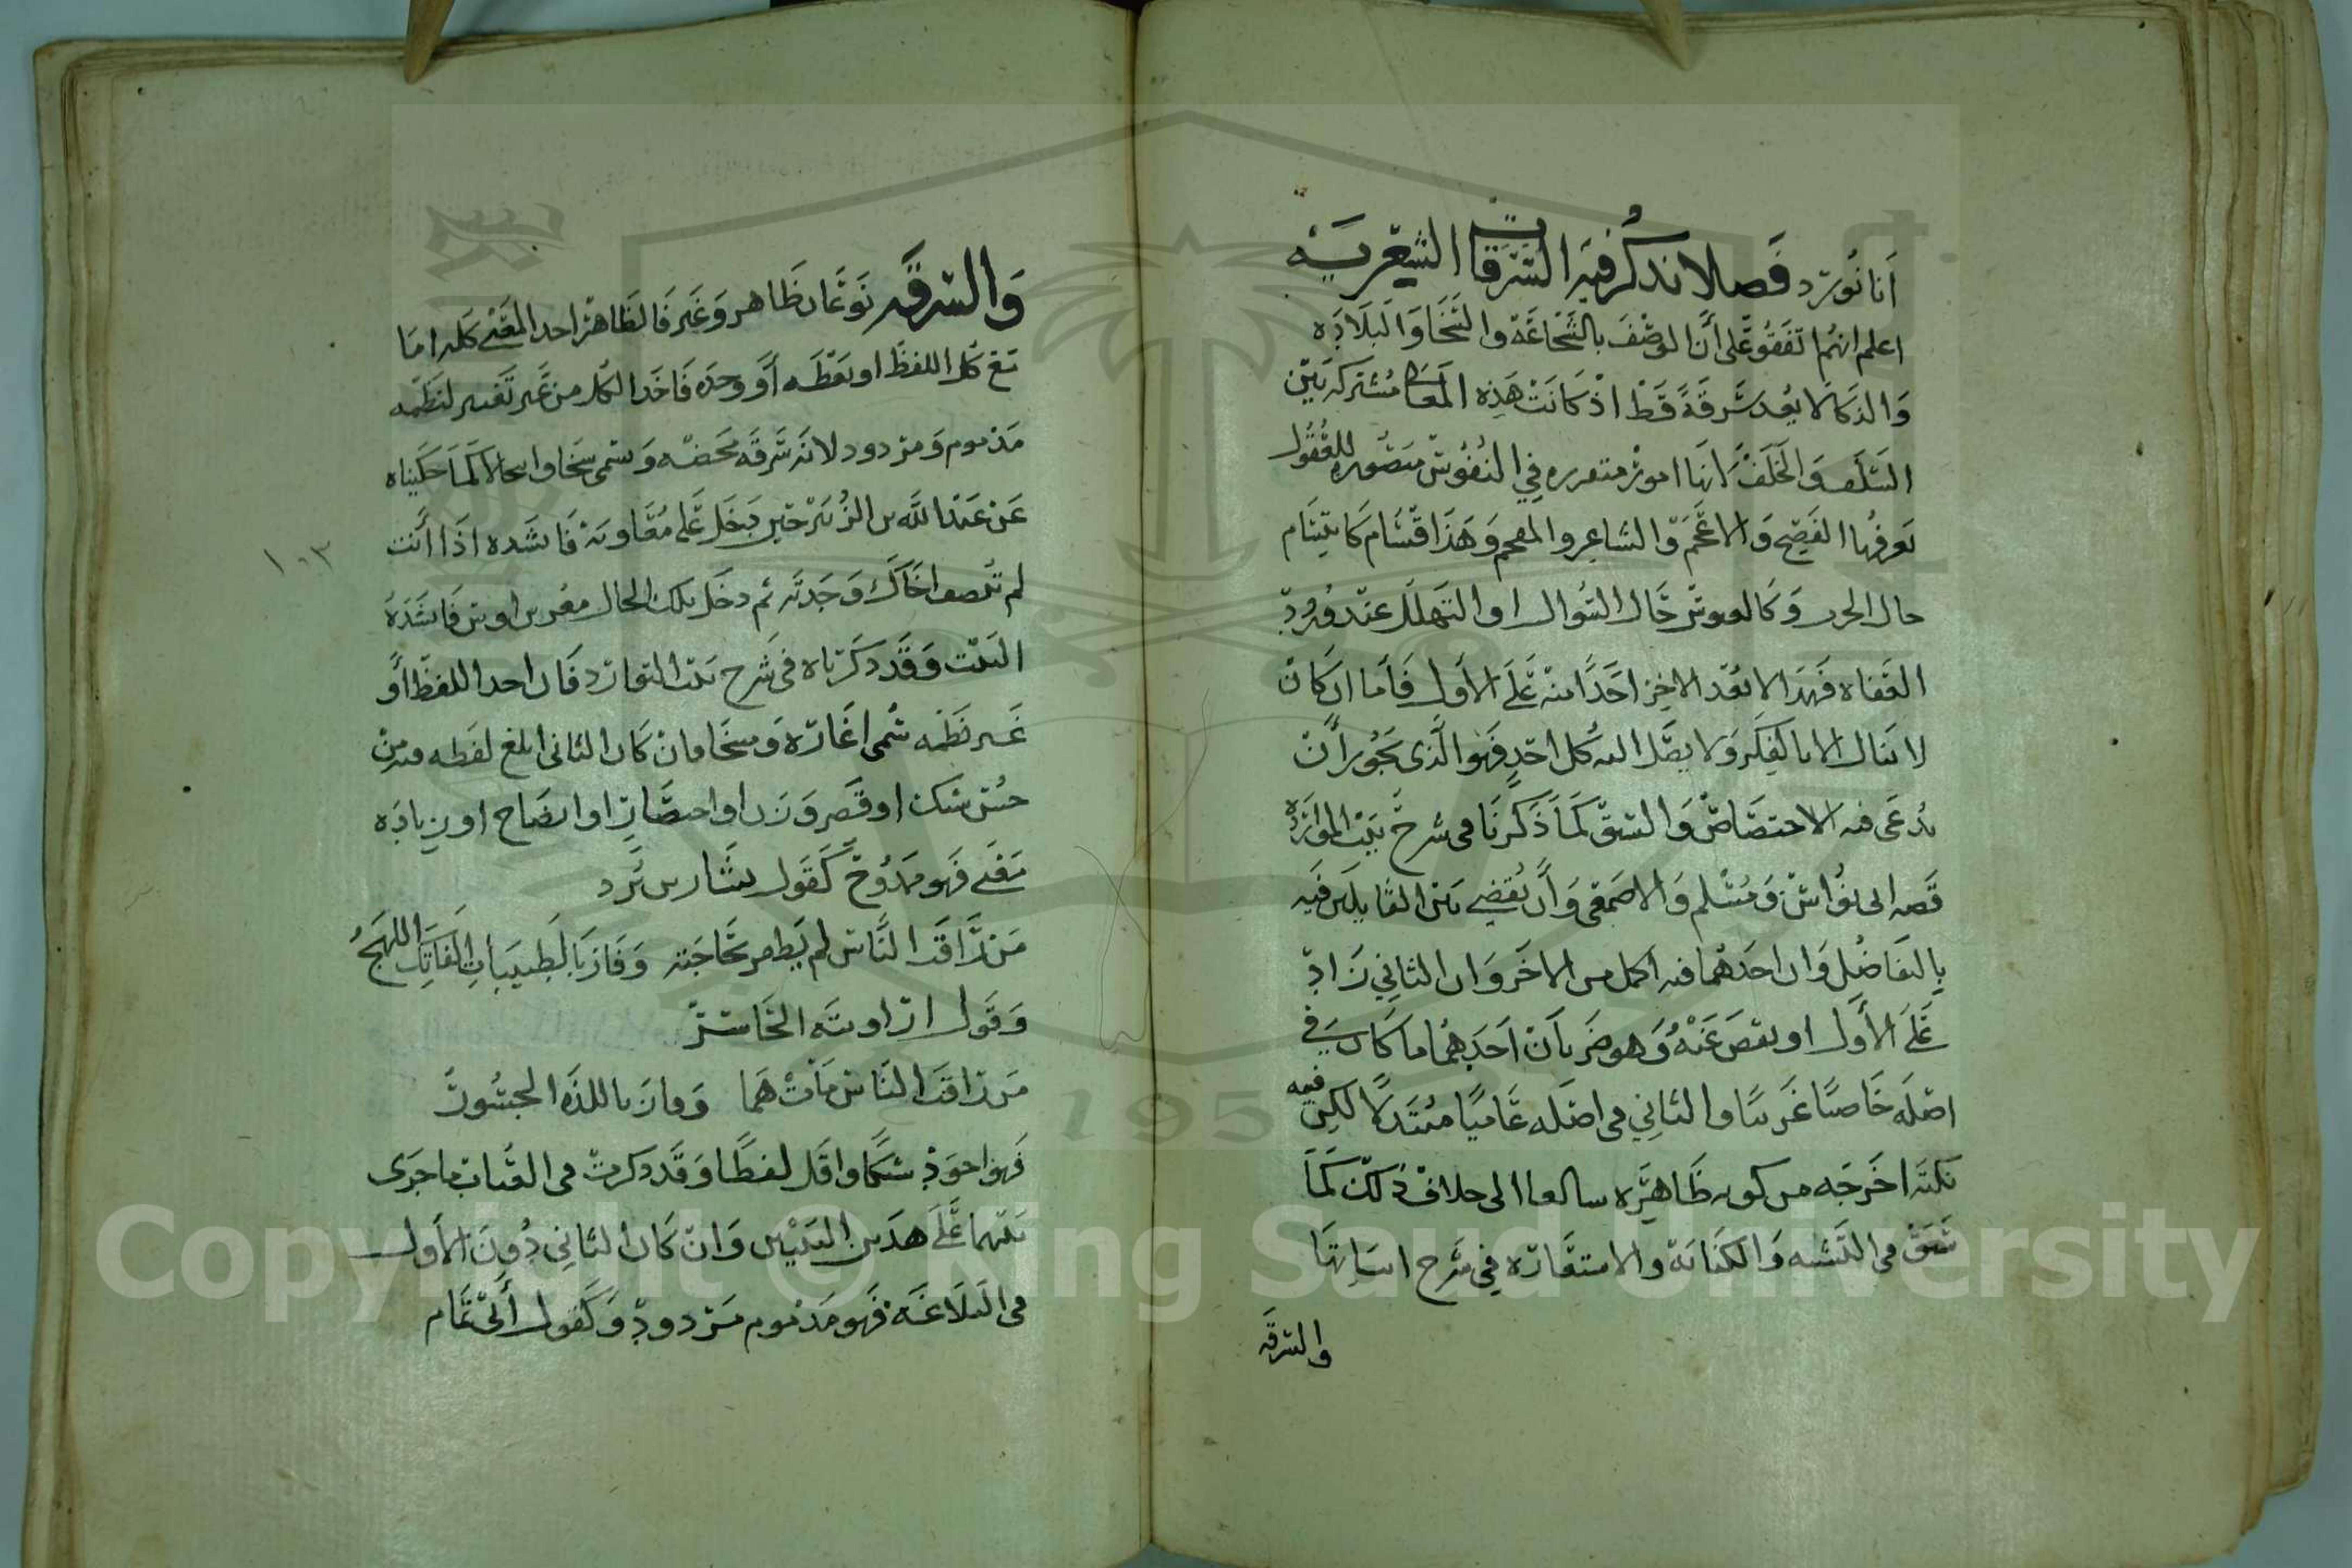 أنا نورد فصلا نذكر فيه السرقات الشعرية
اعلم انهم اتفقو على أن الوصف بالشجاعة والسخا والبلاده
والذكا لا يعد سرقة قط اذ كانت هذه المعانى مشتركه بين
السلف والخلف لانها امور متقرره في النفوس متصوره للعقول
يعرفها الفصيح والاعجم والشاعر والمفحم وهذا قسام كابتسام
حال الحرب وكالعبوس حال السوال او التهلل عند ورود
العفاه فهذا لا يعد الاخر اخذا منه على الأول فأما ان كان
لا ينال الا بالفكر ولا يصل اليه كل احد فهو الذي يجوز أن
يدعى فيه الاختصاص والسبق كما ذكرنا في شرح بيت الموازنه
قصه ابى نواس ومسلم والاصمعى وأن يقضي بين القايلين فيه
بالتفاضل وان احدهما فيه اكمل من الاخر وان الثاني زاد
على الأول او نقص عنه وهو ضربان احدهما ما كان في
اصله خاصيا غريبا والثاني في اصله عاميا مبتدلا لكن فيه
نكته اخرجه من كونه ظاهره الى خلاف ذلك كما
سبق في التشبيه والكنايه والاستعاره في شرح ابياتها
والسرقه
والسرقه نوعان ظاهر وغير فالظاهر اخد المعنى كله اما
مع كل اللفظ او بعظه أو وحده فاخد الكل من غير تغيير لنظمه
مذموم ومردود لانه سرقه محضه وسمى نسخا وانتحالا كما حكيناه
عن عبد الله بن الزبير حين دخل على معاويه فانشده اذا أنت
لم تنصف اخاك وجدته ثم دخل بتلك الحال معن بن اوس فانشده
البيت وقد دكرناه في شرح بيت التوارد فان اخد اللفظ أو
غير نظمه سمى اغاره ومسخا فان كان الثانى ابلغ لفظه فيه من
حسن سبك او قصر وزن او اختصار او ايضاح او زياده
معنى فهو ممدوح كقول بشار بن برد
من راقب الناس لم يظفر بحاجته وفاز بالطيبات الفاتك اللهج
وقول الراويه الخاسر
من راقب الناس مات هما وفاز باللذه الجسور
فهو اجود سبكا واقل لفظا وقد دكرت في العتاب ما جرى
بينهما على هدين البيتين وان كان الثاني دون الأول
في البلاغه فهو مدموم مردود وكقول أبي تمام
١٠٣
Copyright © King Saud University
195